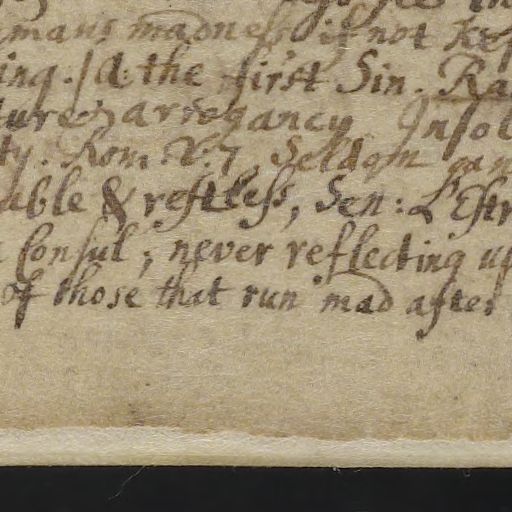 mans madness if not kep
ing. / A: the first Sin. Ra
ture & arrogancy Insol
ty. Rom. V. 7. Seldom
able & restless, Sen: L'Estr
Consul; never reflecting up
of those that run mad after